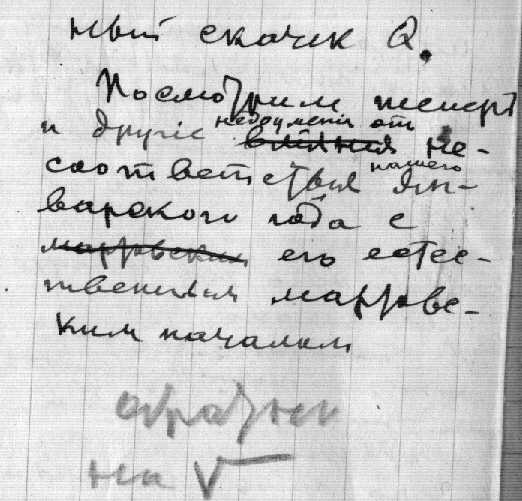 ный скачек Q.
Посмотрим теперь
и другіе недоуменія от
влияния не-
соответствія нашего ян-
варского года с
мартовским его естес-
твенным мартовс-
ким началом
обратно
на √